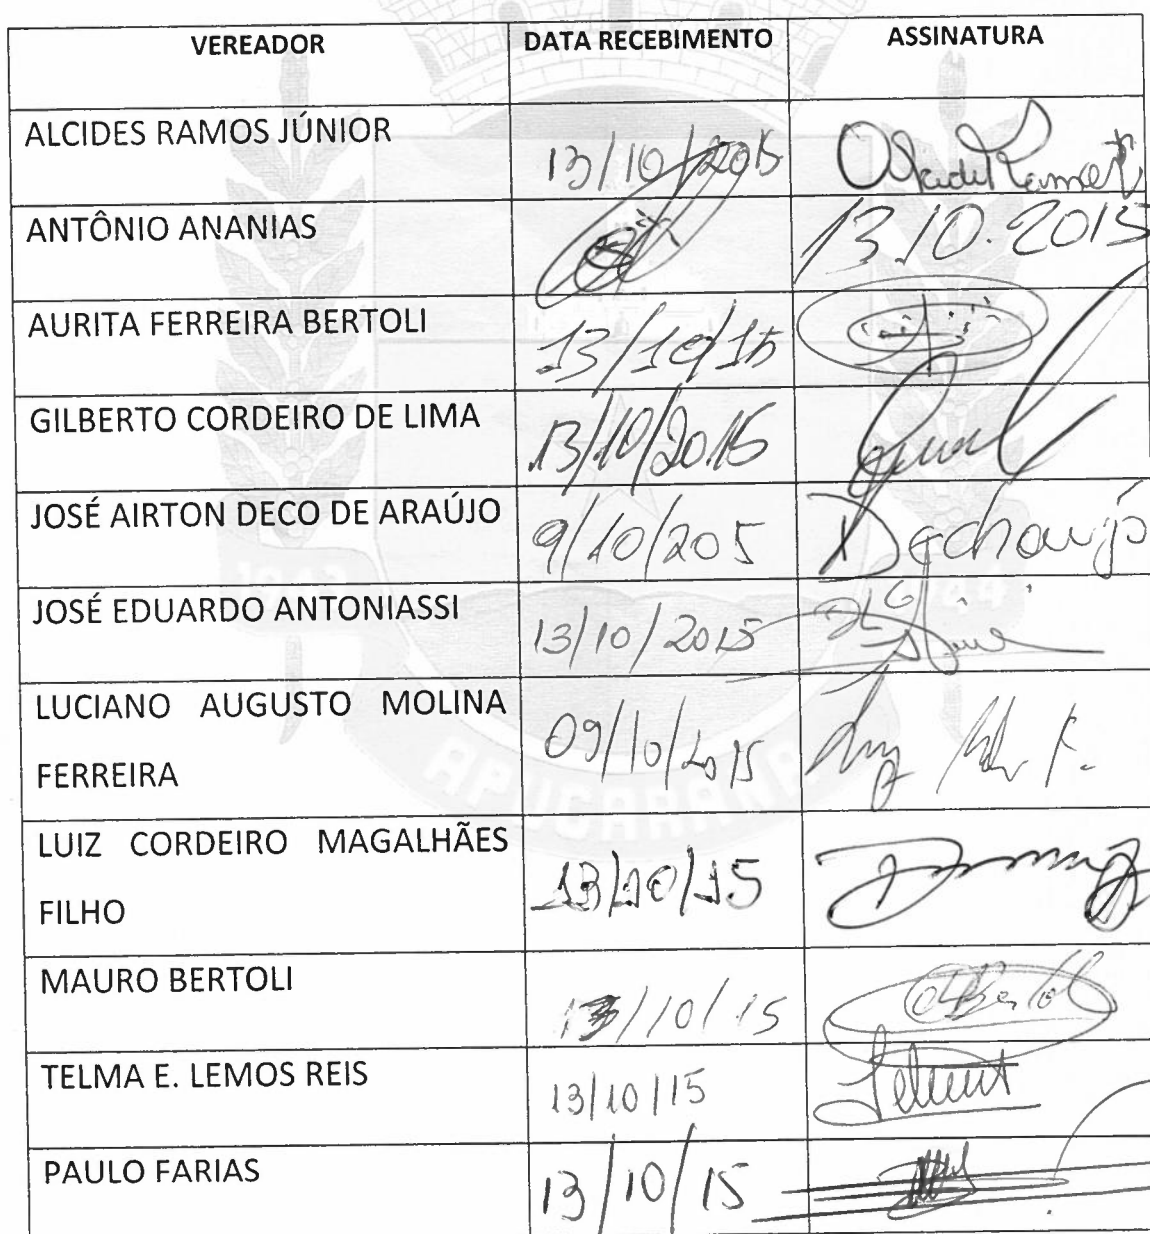 VEREADOR DATA RECEBIMENTO ASSINATURA
ALCIDES RAMOS JÚNIOR 13/10/2015
ANTÔNIO ANANIAS 13.10.2015
AURITA FERREIRA BERTOLI 13/10/15
GILBERTO CORDEIRO DE LIMA 13/10/2015
JOSÉ AIRTON DECO DE ARAÚJO 9/10/205
JOSÉ EDUARDO ANTONIASSI 13/10/2015
LUCIANO AUGUSTO MOLINA
FERREIRA 09/10/2015
LUIZ CORDEIRO MAGALHÃES
FILHO 13/10/15
MAURO BERTOLI 13/10/15
TELMA E. LEMOS REIS 13/10/15
PAULO FARIAS 13/10/15
APUCARANA